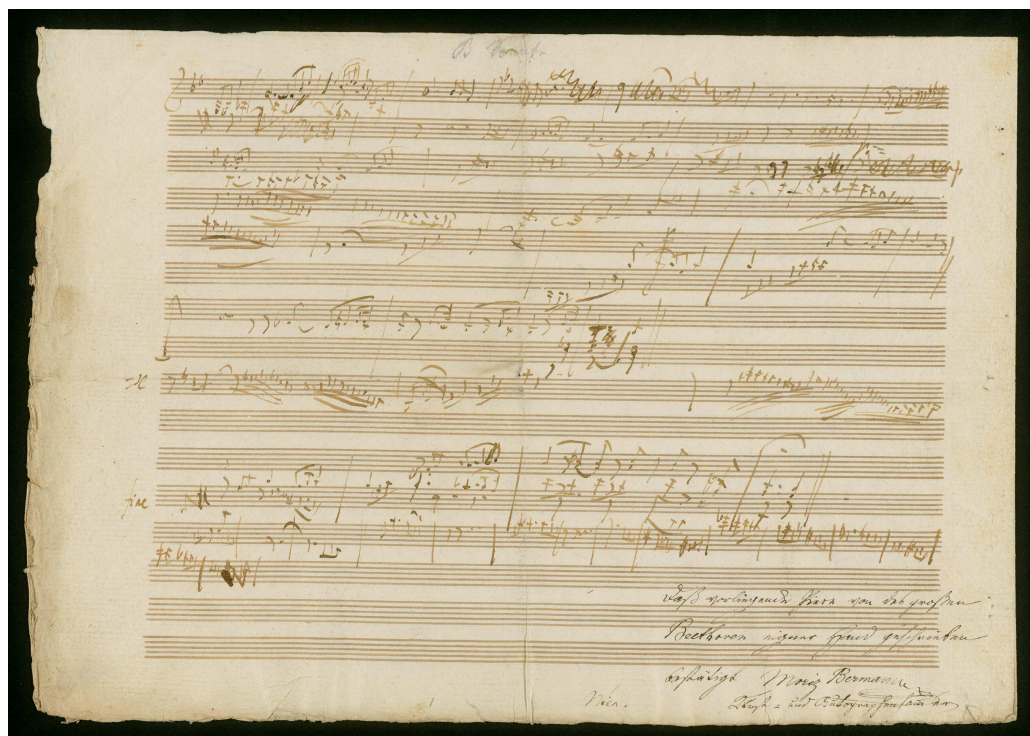 B
fine
Daß vorliegende Piece von des großen
Beethoven eigner Hand geschrieben
bestätigt Moriz Bermann
Wien.
Kunst- und Autographenhändler